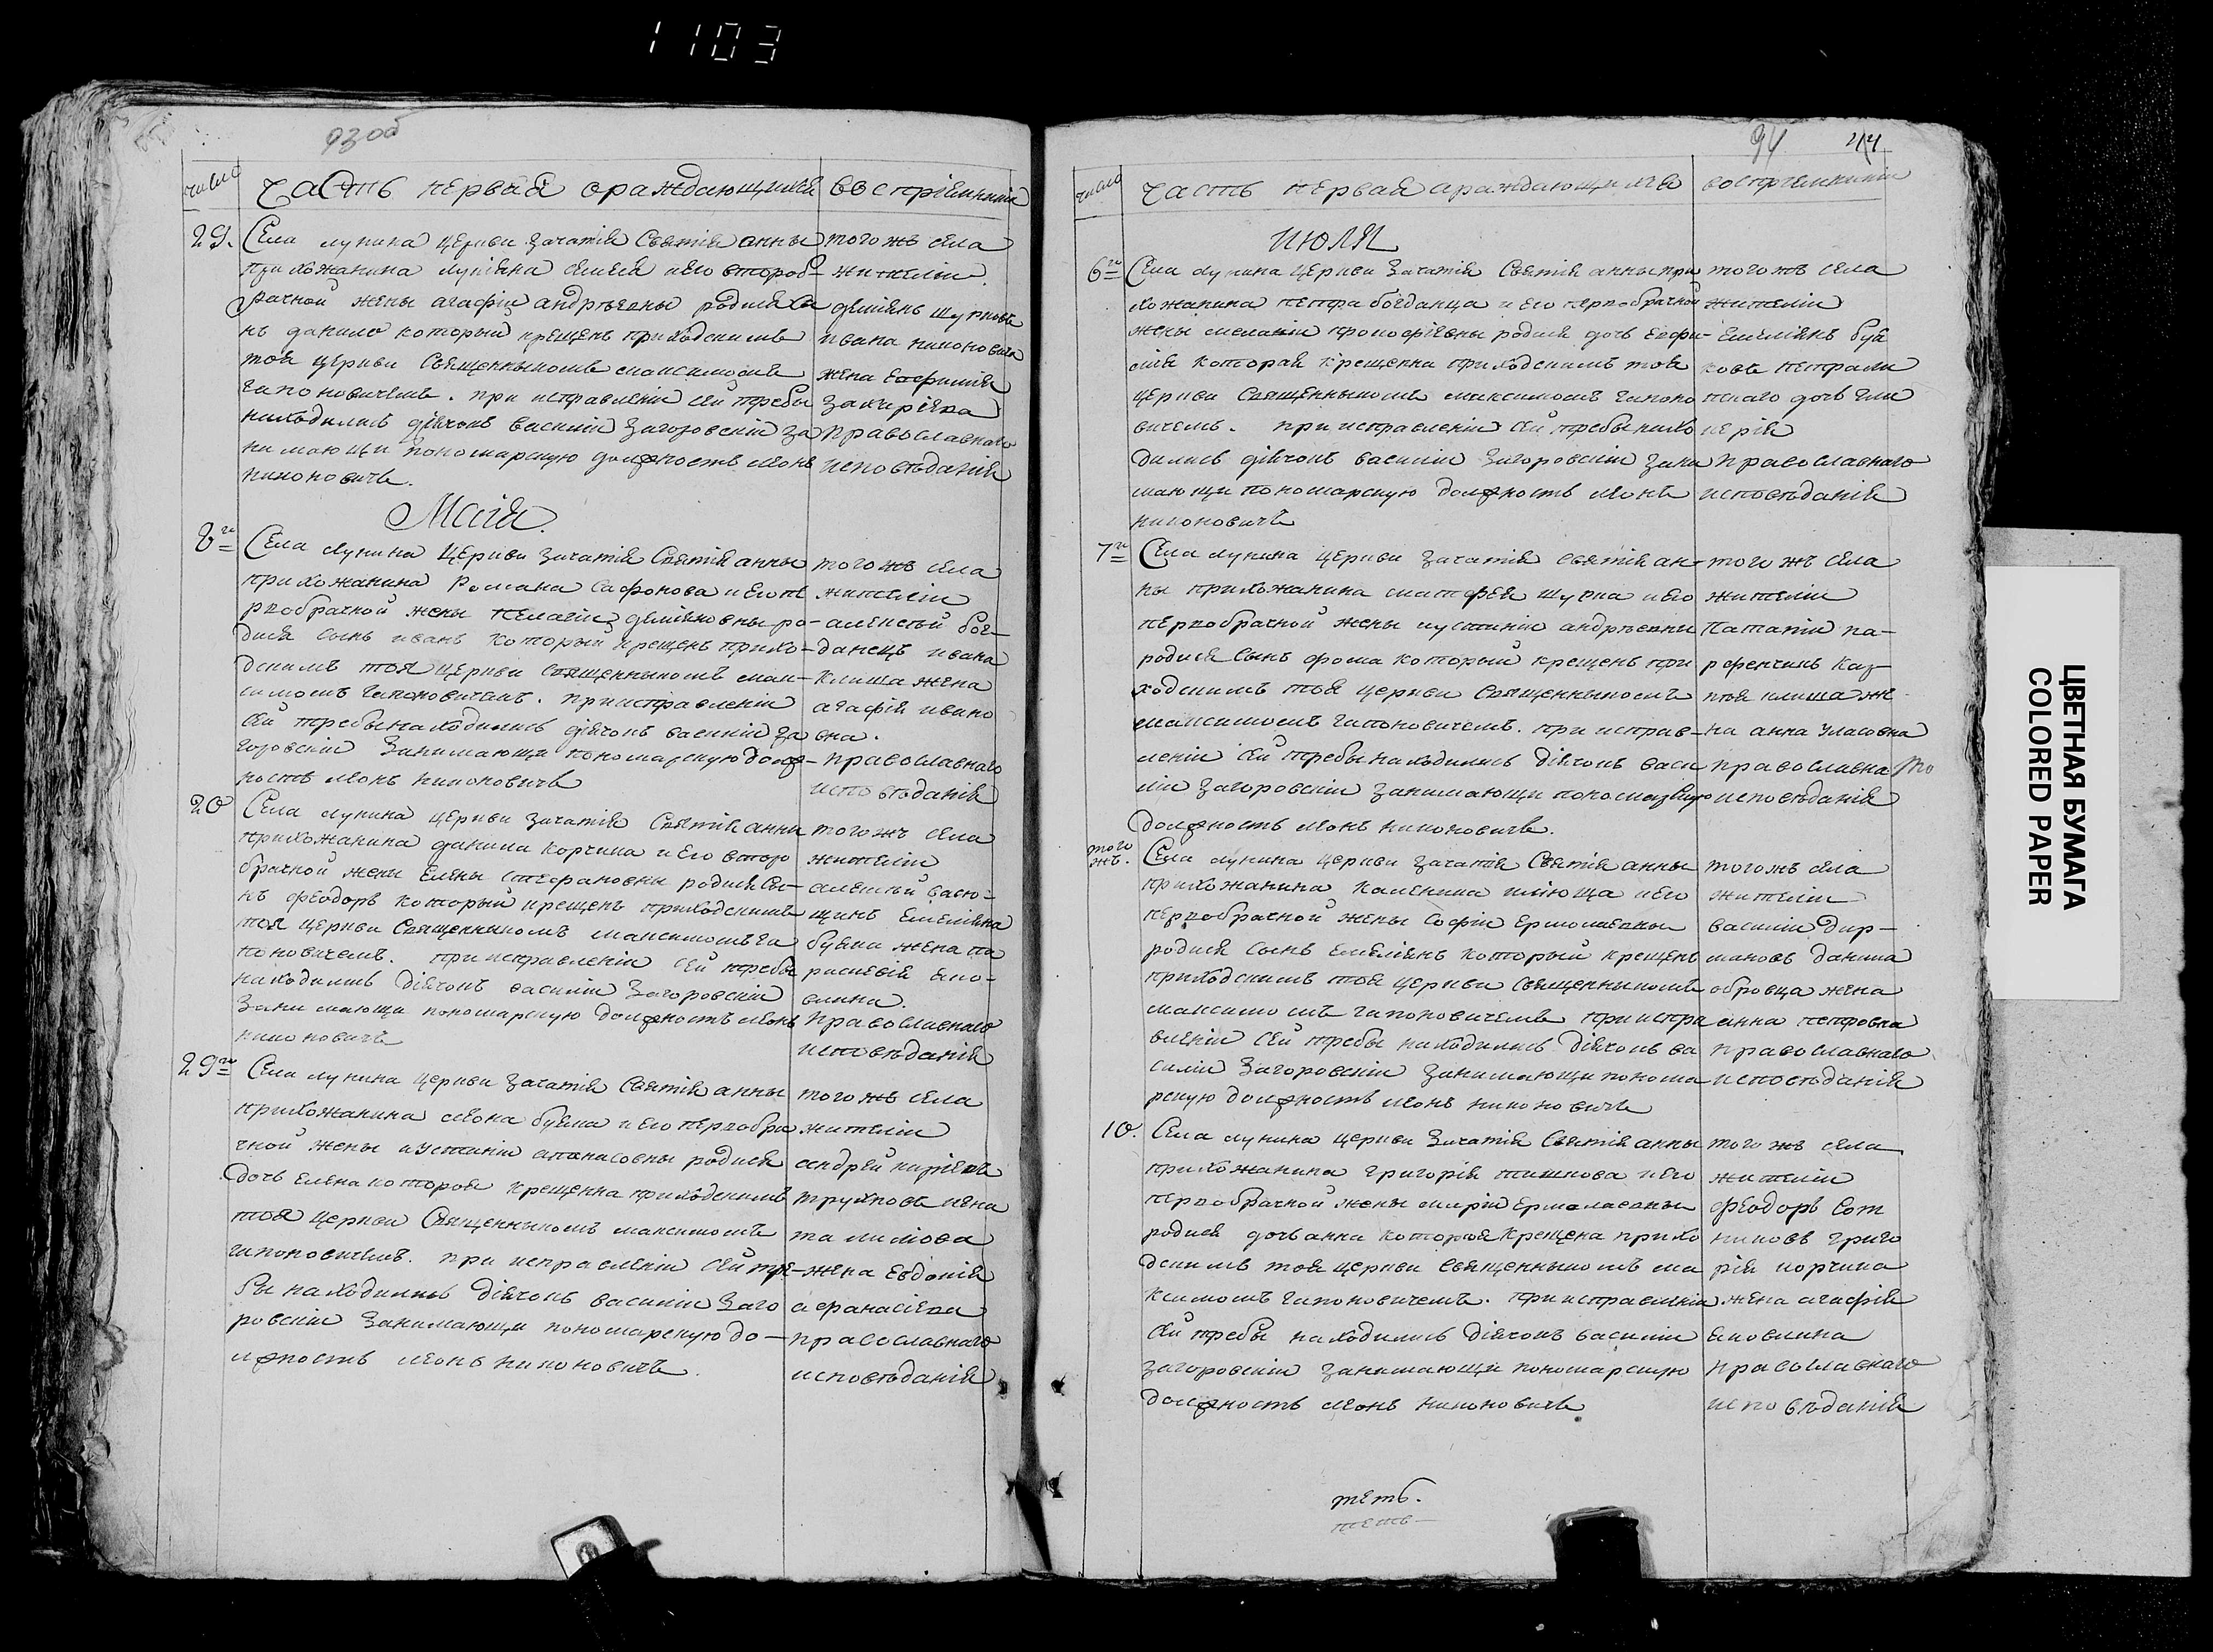 1103
93об
число
Часть первая ораждающихся
восприемники
29.
Села лунина церкви зачатія Святія анны
прихожанина лукіяна семея иего второб-
рачной жены агафіи андрѣевны родися сы
нъ данило который крещенъ приходскимъ
тоя церкви Священникомъ максимомъ
гапоновичемъ. при исправленіи сей требы
находились діячокъ василіи загоровскіи за
нимающи пономарскую должность леонъ
никоновичъ.
того жъ села
жителіи
деміянъ шупновъ
ивана никоновича
жена евфимія
захаріева
православнаго
исповѣданія
Маія.
8го
Села лунина церкви зачатія Святія анны
прихожанина Романа Сафонова и его пе
рвобрачной жены пелагіи деміяновны ро-
дися сынъ иванъ который крещенъ прихо-
дскимъ тоя церкви священникомъ мак-
симомъ гапоновичемъ. приисправленіи
сей требы находились діячокъ василіи за
горовскіи занимающи пономарскую долж-
ность леонъ никоновичъ
того жъ села
жителіи
алексѣй бог-
данецъ ивана
клиша жена
агафія ивано
вна.
православнаго
исповѣданія
20
Села лунина церкви зачатія Святія анны
прихожанина данила корчина и его второ
брачной жены елены стефановны родися сы-
нъ феодоръ который крещенъ приходскимъ
тоя церкви Священникомъ максимомъ га
поновичемъ. при исправленіи сей требы
находились діячокъ василіи загоровскіи
занимающи пономарскую должность леонъ
никоновичъ
того жъ села
жителіи
алексѣй васю-
щикъ емеліяна
буяка жена па
раскевія яко-
влина.
православнаго
исповѣданія
29го
Села лунина церкви зачатія Святія анны
прихожанина леона буяка и его первобра
чной жены иустиніи апанасовны родися
дочь елена которая крещенна приходскимъ
тоя церкви Священникомъ максимомъ
гапоновичемъ. при исправленіи сей тре-
бы находились діячокъ василіи заго
ровскіи занимающи пономарскую до-
лжность леонъ никоновичъ.
того жъ села
жителіи
андрей киріевъ
трухновъ
жена евдокія
афанасіева
православнаго
исповѣданія
94
44
число
Часть первая ораждающихся
восприемники
июля
6го
Села лунина церкви зачатія Святія анны при
хожанина петра богданца и его первобрачной
жены меланіи прокофіевны родися дочь евфи-
мія которая крещенна приходскимъ тоя
церкви священникомъ максимомъ гапоно
вичемъ. при исправленіи сей требы нахо
дились діячокъ василіи загоровскіи зани
мающи пономарскую должность леонъ
никоновичъ
того жъ села
жителіи
емеліянъ буя
ковъ
дочь гли
керія
православнаго
исповѣданія
7го
Села лунина церкви зачатія святія ан-
ны прихожанина матфея шупка и его
первобрачной жены иустиніи андрѣевны
родися сынъ фома который крещенъ при
ходскимъ тоя церкви священникомъ
максимомъ гапоновичемъ. при исправ-
леніи сей требы находились діячокъ васи
ліи загоровскіи занимающи пономарскую
должность леонъ никоновичъ.
того жъ села
жителіи
Патапіи па-
рфенчикъ кар-
пея клиша же
на анна уласовна
православнаго
исповѣданія
того
жъ.
Села лунина церкви зачатія Святія анны
прихожанина каленика илюща и его
первобрачной жены Софіи Ермолаевны
родися сынъ емеліянъ который крещенъ
приходскимъ тоя церкви священникомъ
максимомъ гапоновичемъ при испра
вленіи сей требы находились діячокъ ва
силіи загоровскіи занимающи понома
рскую должность леонъ никоновичъ
того жъ села
жителіи
василіи дир-
мановъ данила
обровца жена
анна петровна
православнаго
исповѣданія
10.
Села лунина церкви зачатія Святія анны
прихожанина григорія тишкова и его
первобрачной жены маріи Ермолаевны
родися дочь анна которая крещена прихо
дскимъ тоя церкви священникомъ ма
ксимомъ гапоновичемъ. при исправленіи
сей требы находились діячокъ василіи
загоровскіи занимающи пономарскую
должность леонъ никоновичъ
того жъ села
жителіи
феодоръ Сот
никовъ григо
рія корчика
жена агафія
яковлина
православнаго
исповѣданія
теть.
теть
ЦВЕТНАЯ БУМАГА
COLORED PAPER